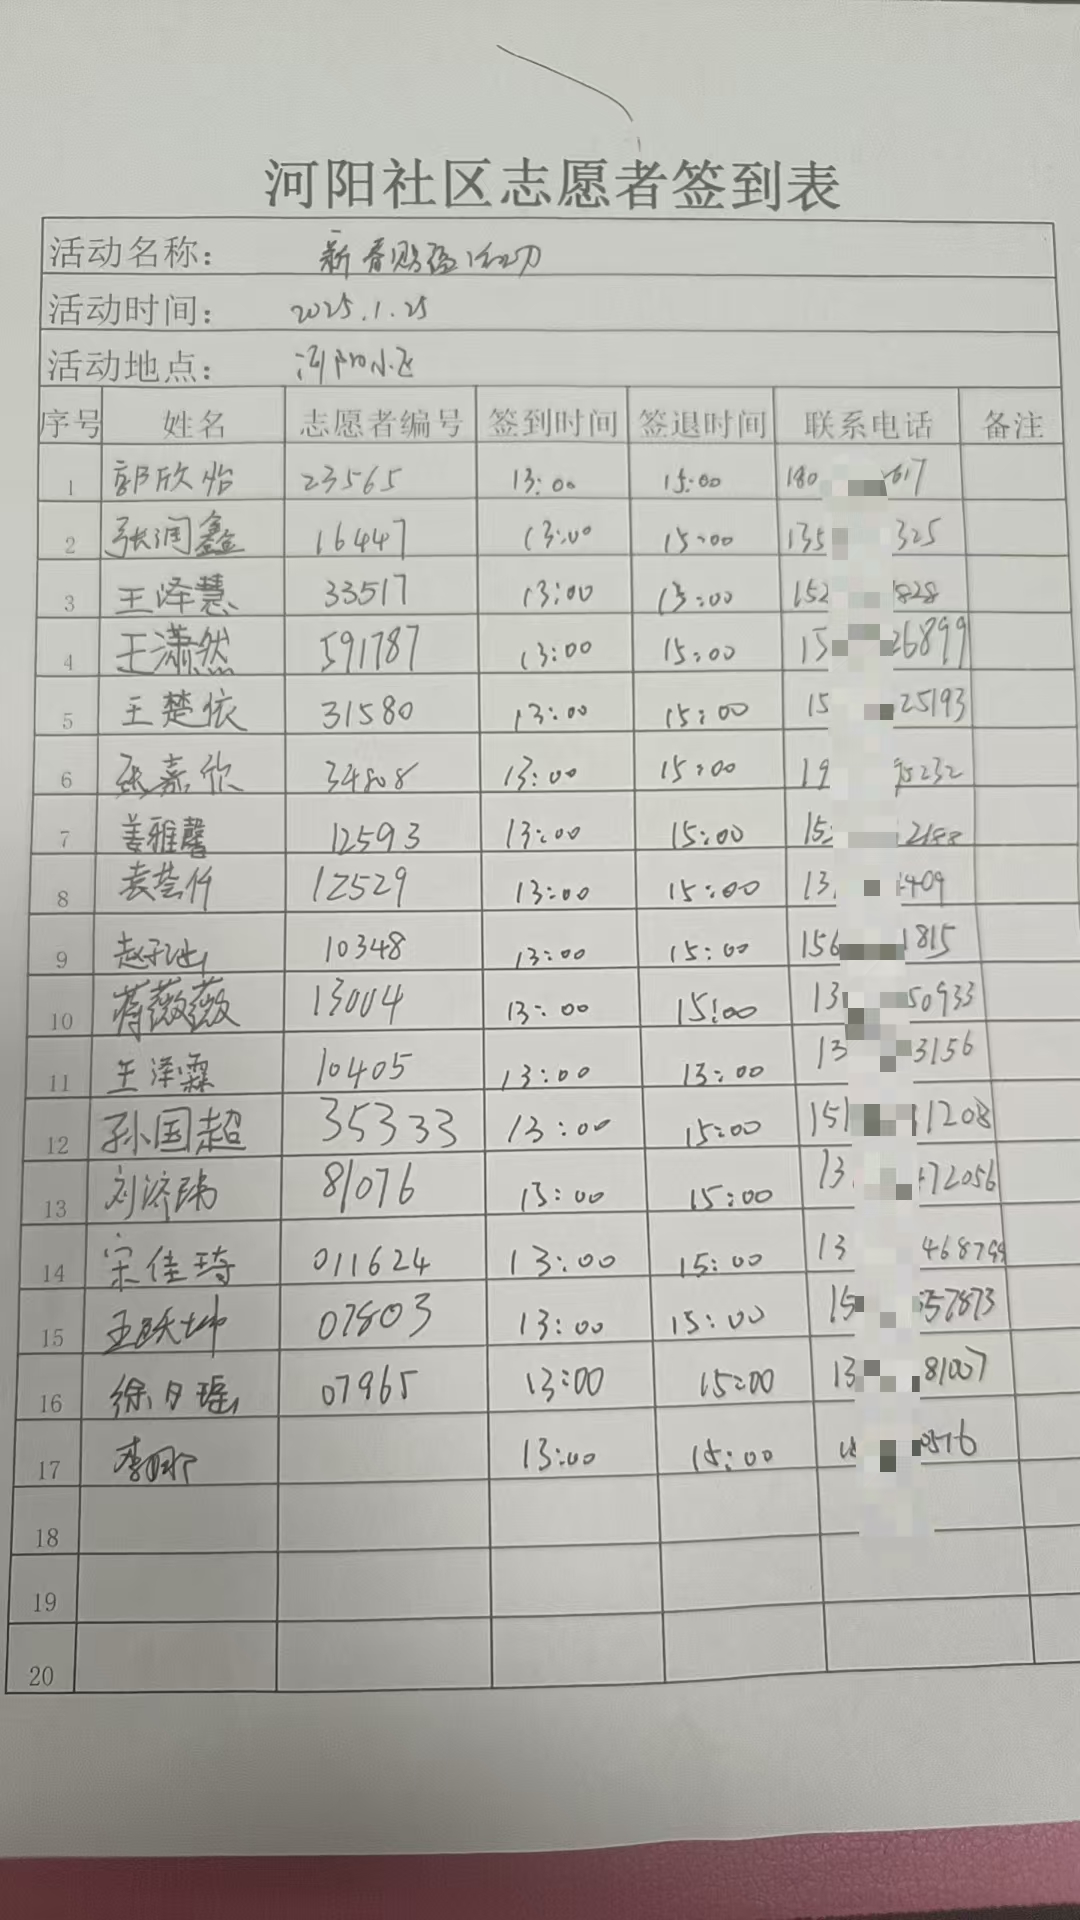 河阳社区志愿者签到表
活动名称： 新春贴福活动
活动时间： 2025.1.25
活动地点： 河阳小区
序号 姓名 志愿者编号 签到时间 签退时间 联系电话 备注
1 郭欣怡 23565 13:00 15:00 180 617
2 张润鑫 16447 13:00 15:00 135 325
3 王泽慧 33517 13:00 13:00 152 828
4 王潇然 591787 13:00 15:00 15 26899
5 王楚依 31580 13:00 15:00 15 25193
6 张嘉欣 34808 13:00 15:00 19 95232
7 姜雅馨 12593 13:00 15:00 15 2188
8 袁荟竹 12529 13:00 15:00 13 409
9 赵 10348 13:00 15:00 156 1815
10 蒋薇薇 13004 13:00 15:00 13 50933
11 王泽霖 10405 13:00 13:00 13 3156
12 孙国超 35333 13:00 15:00 151 1208
13 刘济玮 81076 13:00 15:00 13 472056
14 宋佳琦 011624 13:00 15:00 13 468799
15 王跃坤 07803 13:00 15:00 15 557873
16 徐日瑶 07965 13:00 15:00 13 81007
17 李 13:00 15:00 0576
18
19
20